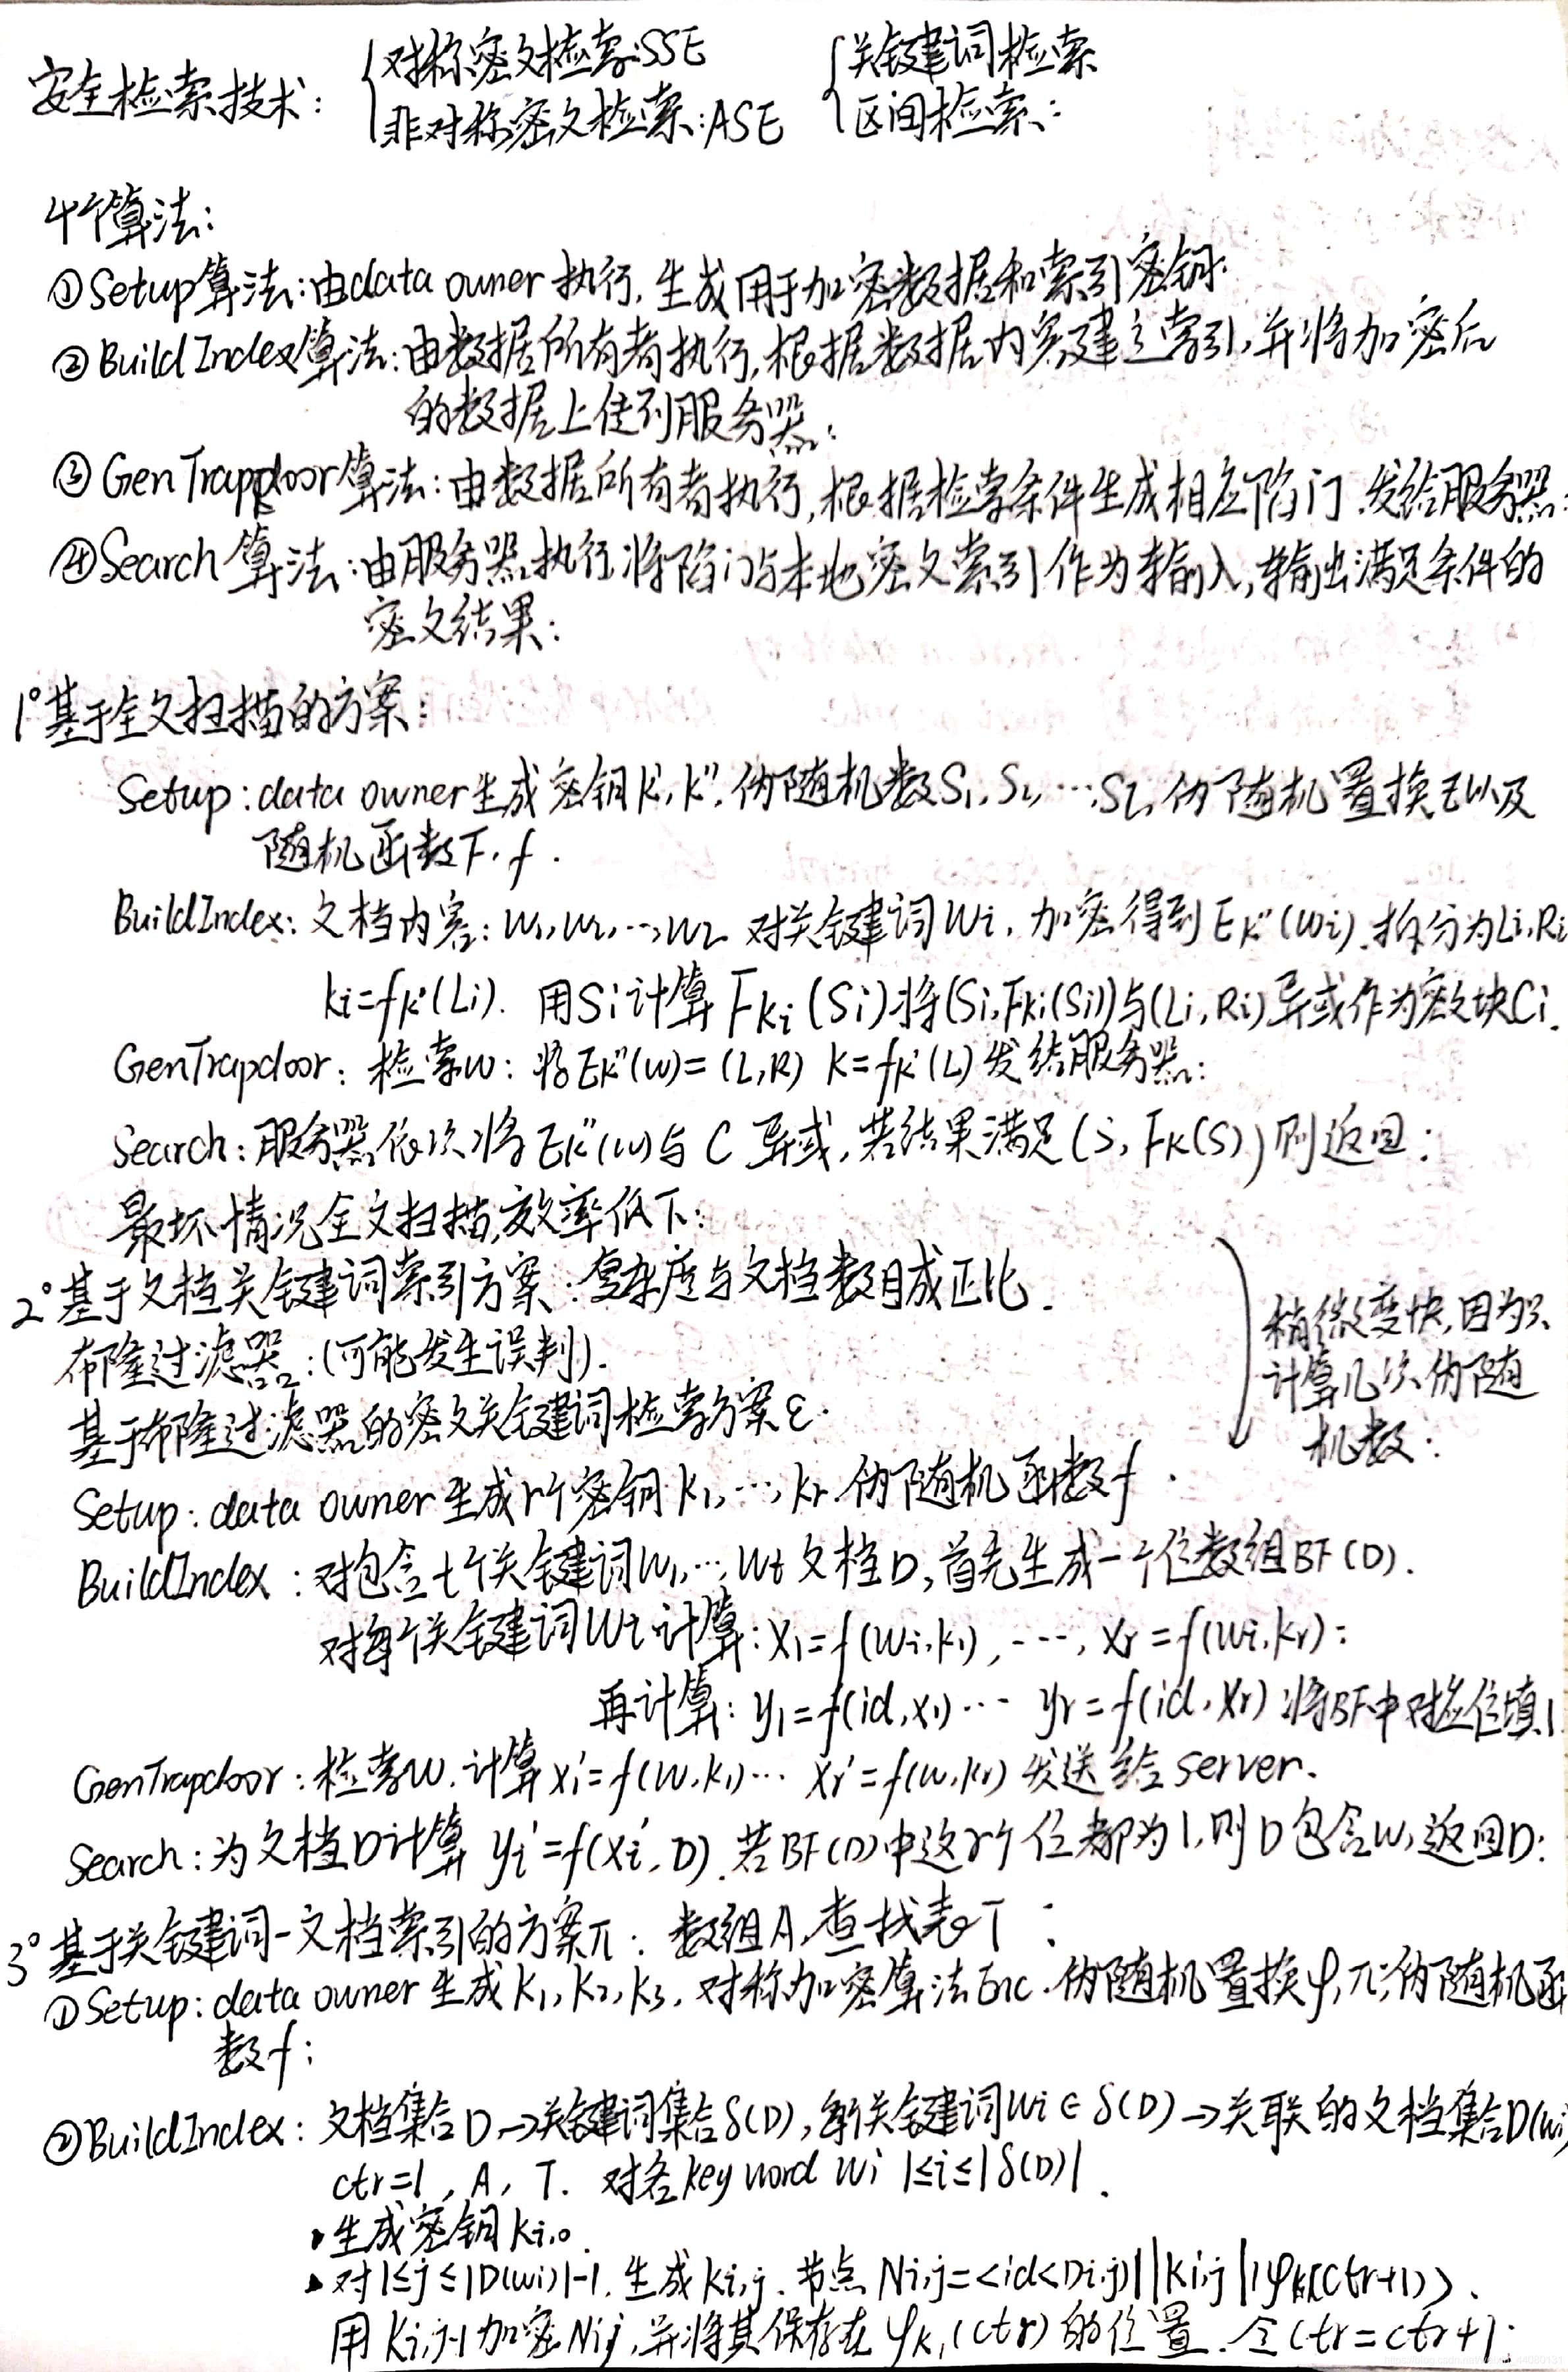 安全检索技术: {对称密文检索:SSE {关键词检索
非对称密文检索:ASE 区间检索:
4个算法:
①Setup算法:由data owner执行,生成用于加密数据和索引密钥.
②BuildIndex算法:由数据所有者执行,根据数据内容建立索引,并将加密后
的数据上传到服务器:
③GenTrapdoor算法:由数据所有者执行,根据检索条件生成相应陷门.发给服务器:
④Search算法:由服务器执行.将陷门与本地密文索引作为输入,输出满足条件的
密文结果:
1°基于全文扫描的方案:
Setup:data owner生成密钥k',k",伪随机数S1,S2,…,SL,伪随机置换E以及
随机函数F,f.
BuildIndex:文档内容:W1,W2,…,WL 对关键词Wi,加密得到Ek"(Wi).拆分为Li,Ri
ki=fk'(Li). 用Si计算Fki(Si)将(Si,Fki(Si))与(Li,Ri)异或作为密文块Ci.
GenTrapdoor:检索w:将Ek"(w)=(L,R) k=fk'(L)发给服务器:
Search:服务器依次将Ek"(w)与C异或,若结果满足(S,Fk(S))则返回:
最坏情况全文扫描,效率低下:
2°基于文档关键词索引方案:复杂度与文档数目成正比.
布隆过滤器:(可能发生误判).
基于布隆过滤器的密文关键词检索方案ε.
稍微变快,因为只
计算几次伪随
机数:
Setup:data owner生成r个密钥k1,…,kr.伪随机函数f.
BuildIndex:对包含t个关键词W1,…,Wt文档D,首先生成一个位数组BF(D).
对每个关键词Wi计算:X1=f(Wi,k1),…,Xr=f(Wi,kr):
再计算:y1=f(id,x1)… yr=f(id,xr)将BF中对应位填1
GenTrapdoor:检索w.计算x1'=f(w,k1)… xr'=f(w,kr)发送给server.
Search:为文档D计算yi'=f(xi',D).若BF(D)中这r个位都为1,则D包含w,返回D:
3°基于关键词-文档索引的方案π:数组A,查找表T:
①Setup:data owner生成k1,k2,k3,对称加密算法Enc.伪随机置换φ,π;伪随机函
数f:
②BuildIndex:文档集合D→关键词集合δ(D),每个关键词Wi∈δ(D)→关联的文档集合D(wi)
ctr=1,A,T. 对各keyword wi 1≤i≤|δ(D)|.
·生成密钥ki,0.
·对1≤j≤|D(wi)|-1.生成ki,j.节点Ni,j=<id<Di,j)||ki,j||φk1(ctr+1)>.
用ki,j-1加密Ni,j,并将其保存在φk1(ctr)的位置.令ctr=ctr+1: